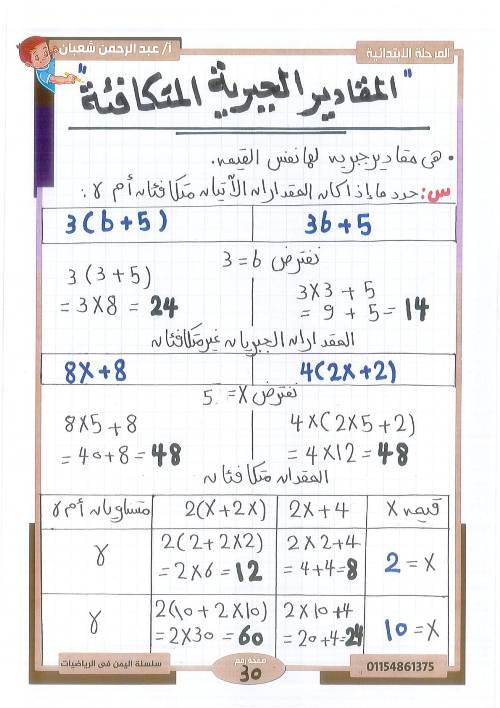 المرحلة الابتدائية
أ/ عبد الرحمن شعبان
"المقادير الجبرية المتكافئة"
• هى مقادير جبريه لها نفس القيمه.
س: حدد ما إذا كان المقداران الآتيان متكافئان أم لا:
3(b+5) 3b+5
نفترض b = 3
3(3+5) 3×3+5
= 3×8 = 24 = 9+5 = 14
المقداران الجبريان غير متكافئان
8x+8 4(2x+2)
نفترض x = 5
8×5+8 4×(2×5+2)
= 40+8 = 48 = 4×12 = 48
المقدران متكافئان
قيمه x 2x+4 2(x+2x) متساويان أم لا
2 = x 2×2+4 2(2+2×2) لا
= 4+4=8 = 2×6 = 12
10 = x 2×10+4 2(10+2×10) لا
= 20+4=24 = 2×30 = 60
01154861375
صفحة رقم
30
سلسلة اليمن فى الرياضيات